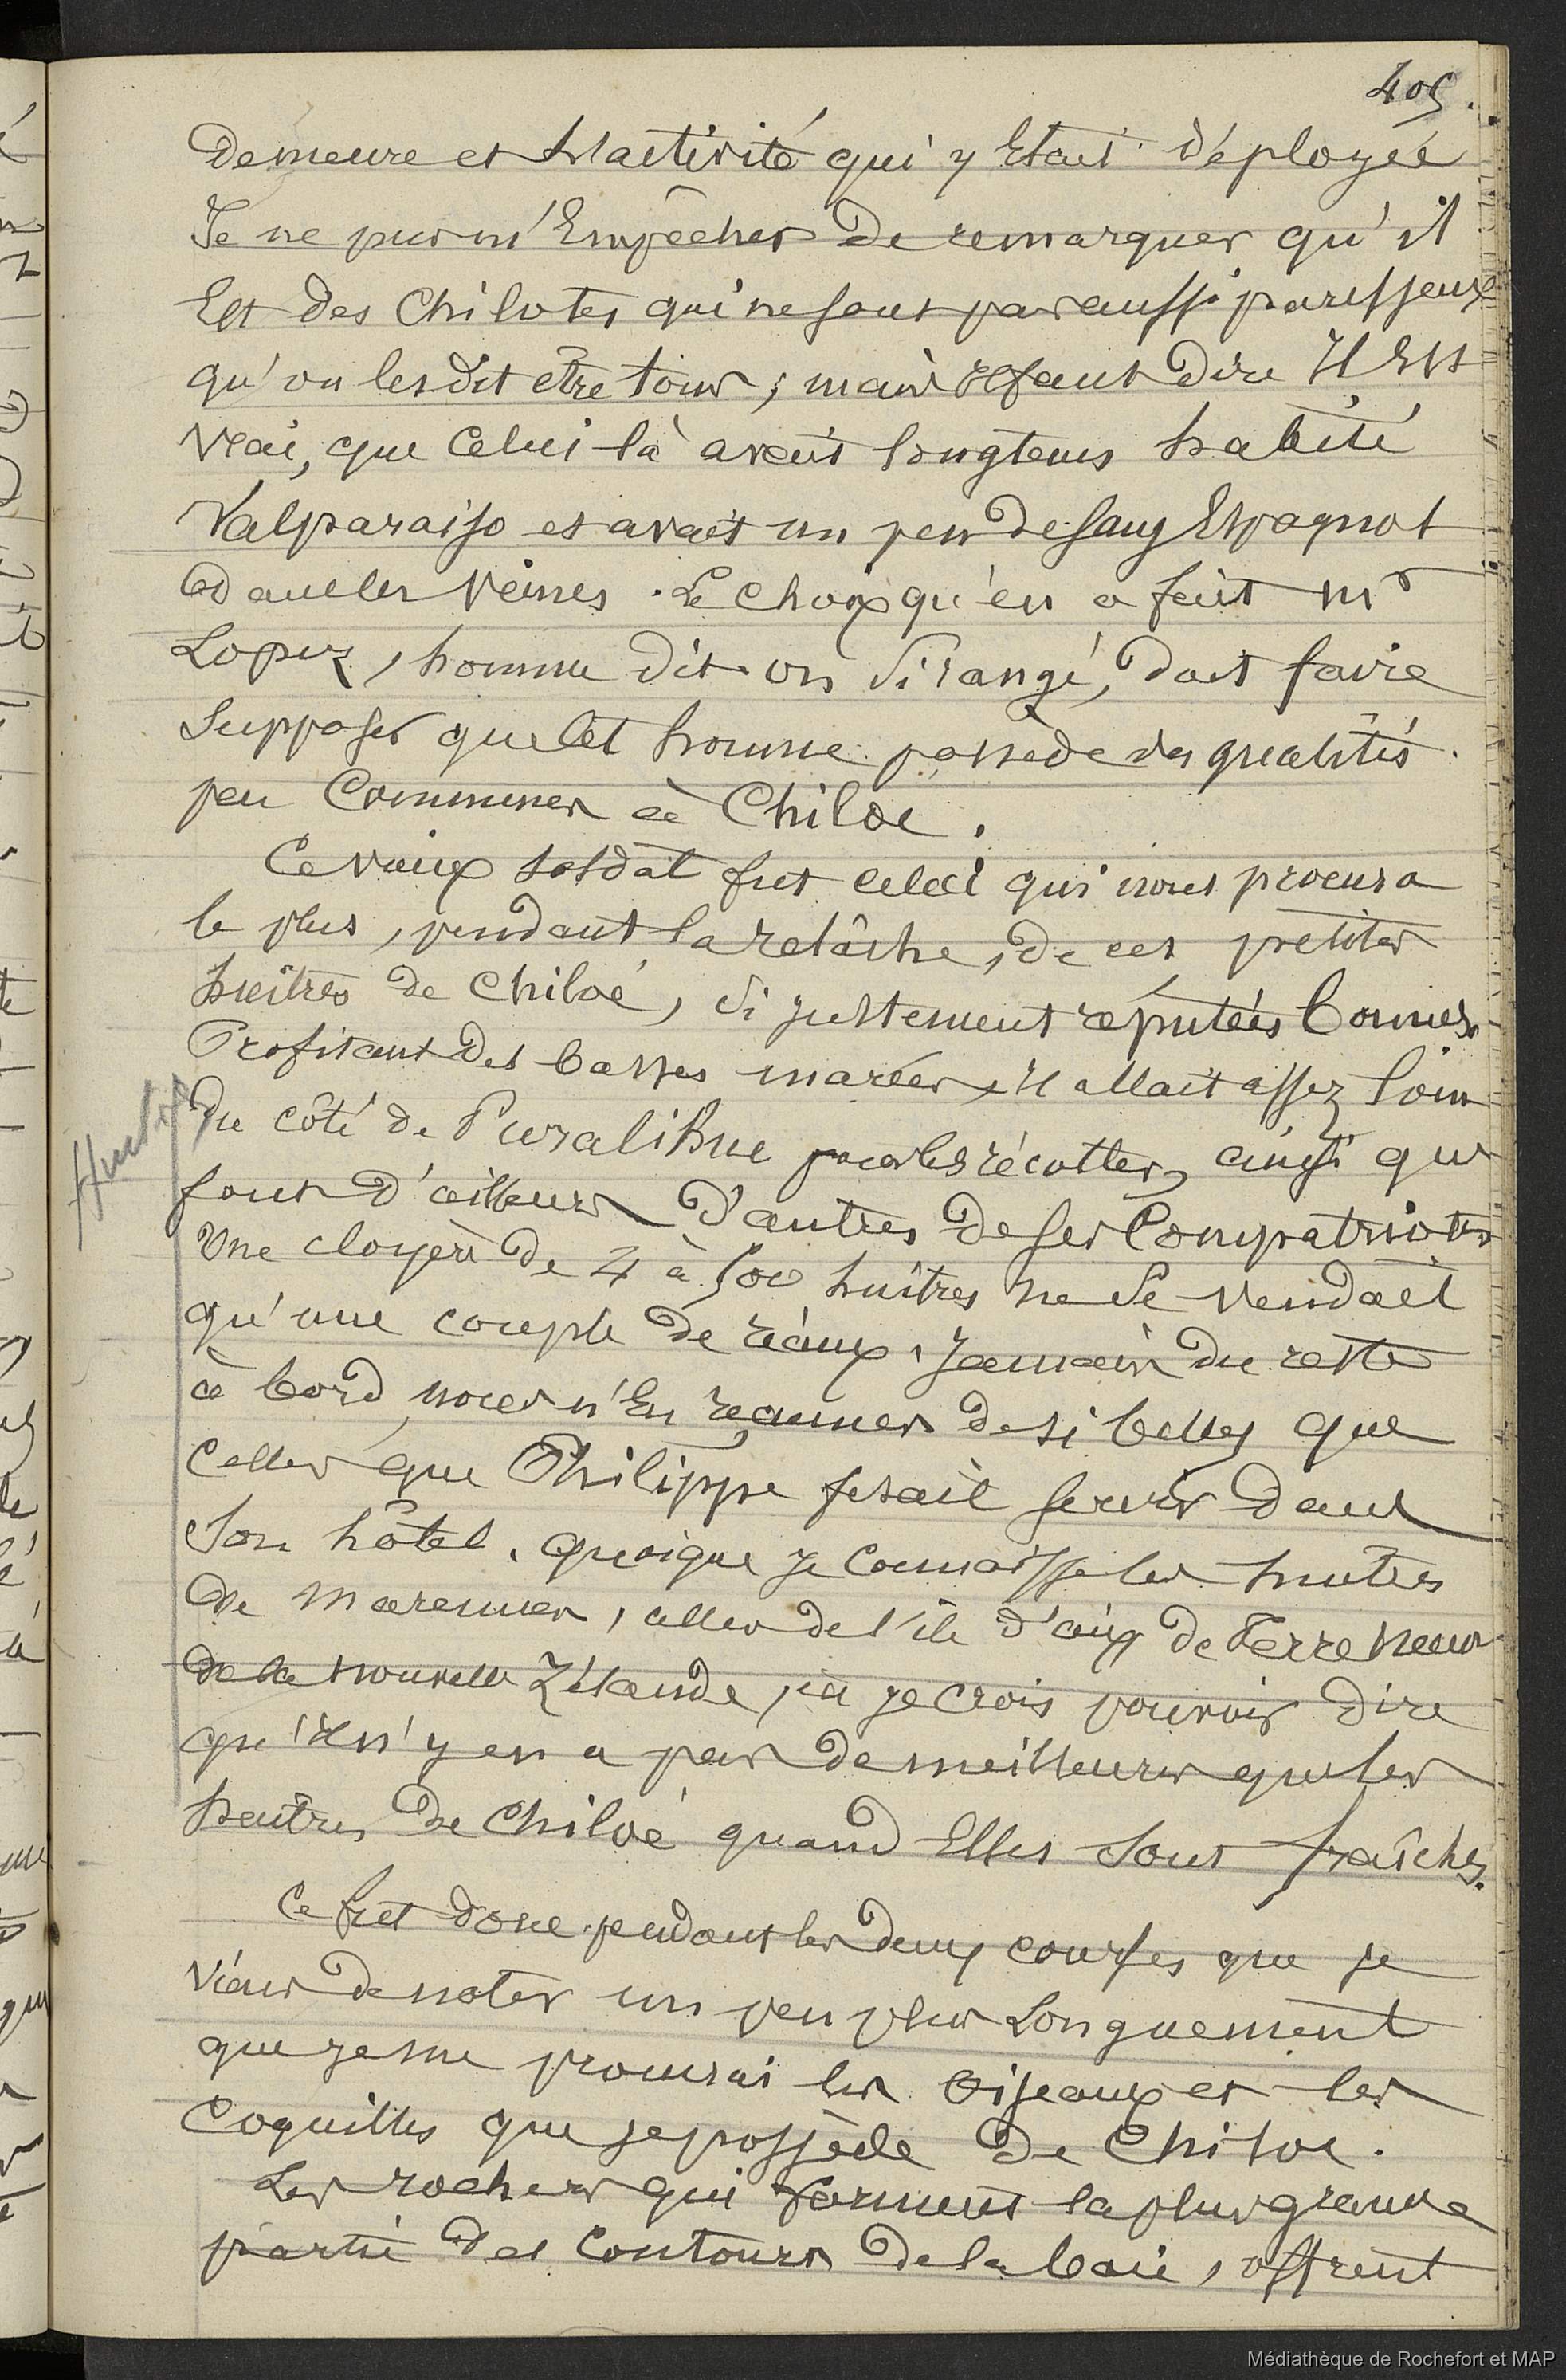 405.
Demeure et l'activité qui y Etait déployée
Je ne pus m'Empêcher de remarquer qu'il
Est des Chilotes qui ne sont pas aussi paresseux
qu'on les dit être tous ; mais il faut dire Il Est
vrai, que Celui là avait longtems habité
Valparaiso et avait un peu de sang Espagnol
dans les veines. Le Choix qu'en a fait Mr
Lopez, homme dit-on si rangé, doit faire
Supposer que Cet homme possède des qualités
peu Communes à Chiloe.
Ce vieux soldat fut celui qui nous procura
le plus, pendant la relâche, de ces petites
huîtres de Chiloé, si justement réputées bonnes.
Profitant des basses marées, il allait assez loin
Huîtres
du côté de pour les récolter, ainsi que
font d'ailleurs d'autres de ses Compatriotes
Une cloyère de 4 à 500 huîtres ne se vendait
qu'une couple de réaux. Jamais du reste
à bord nous n'En de si belles que
Celles que Philippe fesait servir dans
Son hôtel. quoique je Connaisse les huîtres
de Marennes, celles de l'île d'aix de Terre Neuve
de la Nouvelle Zélande, je crois pouvoir dire
qu'il n'y en a pas de meilleures que les
huîtres de Chiloé quand Elles sont fraîches.
Ce fut donc pendant les deux courses que je
viens de noter un peu plus Longuement
que je me procurai les Oiseaux et les
Coquilles que je possède de Chiloe.
Les rochers qui forment la plus grande
partie des Contours de la baie, offrent
Médiathèque de Rochefort et MAP